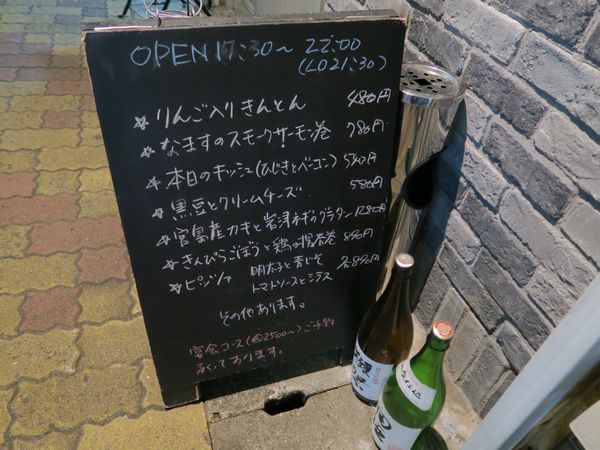 OPEN 17:30〜 22:00
(LO21:30)
* りんご入りきんとん 480円
* なますのスモークサーモン巻 780円
* 本日のキッシュ(ひじきとベーコン) 540円
* 黒豆とクリームチーズ 580円
* 宮島産カキと岩津ネギのグラタン 1280円
* きんぴらごぼうと鶏の揚春巻 890円
* ピッツァ 明太子と青じそ 各890円
トマトソースとシラス
その他あります。
宴会コース(@2500〜)ご予約
承っております。